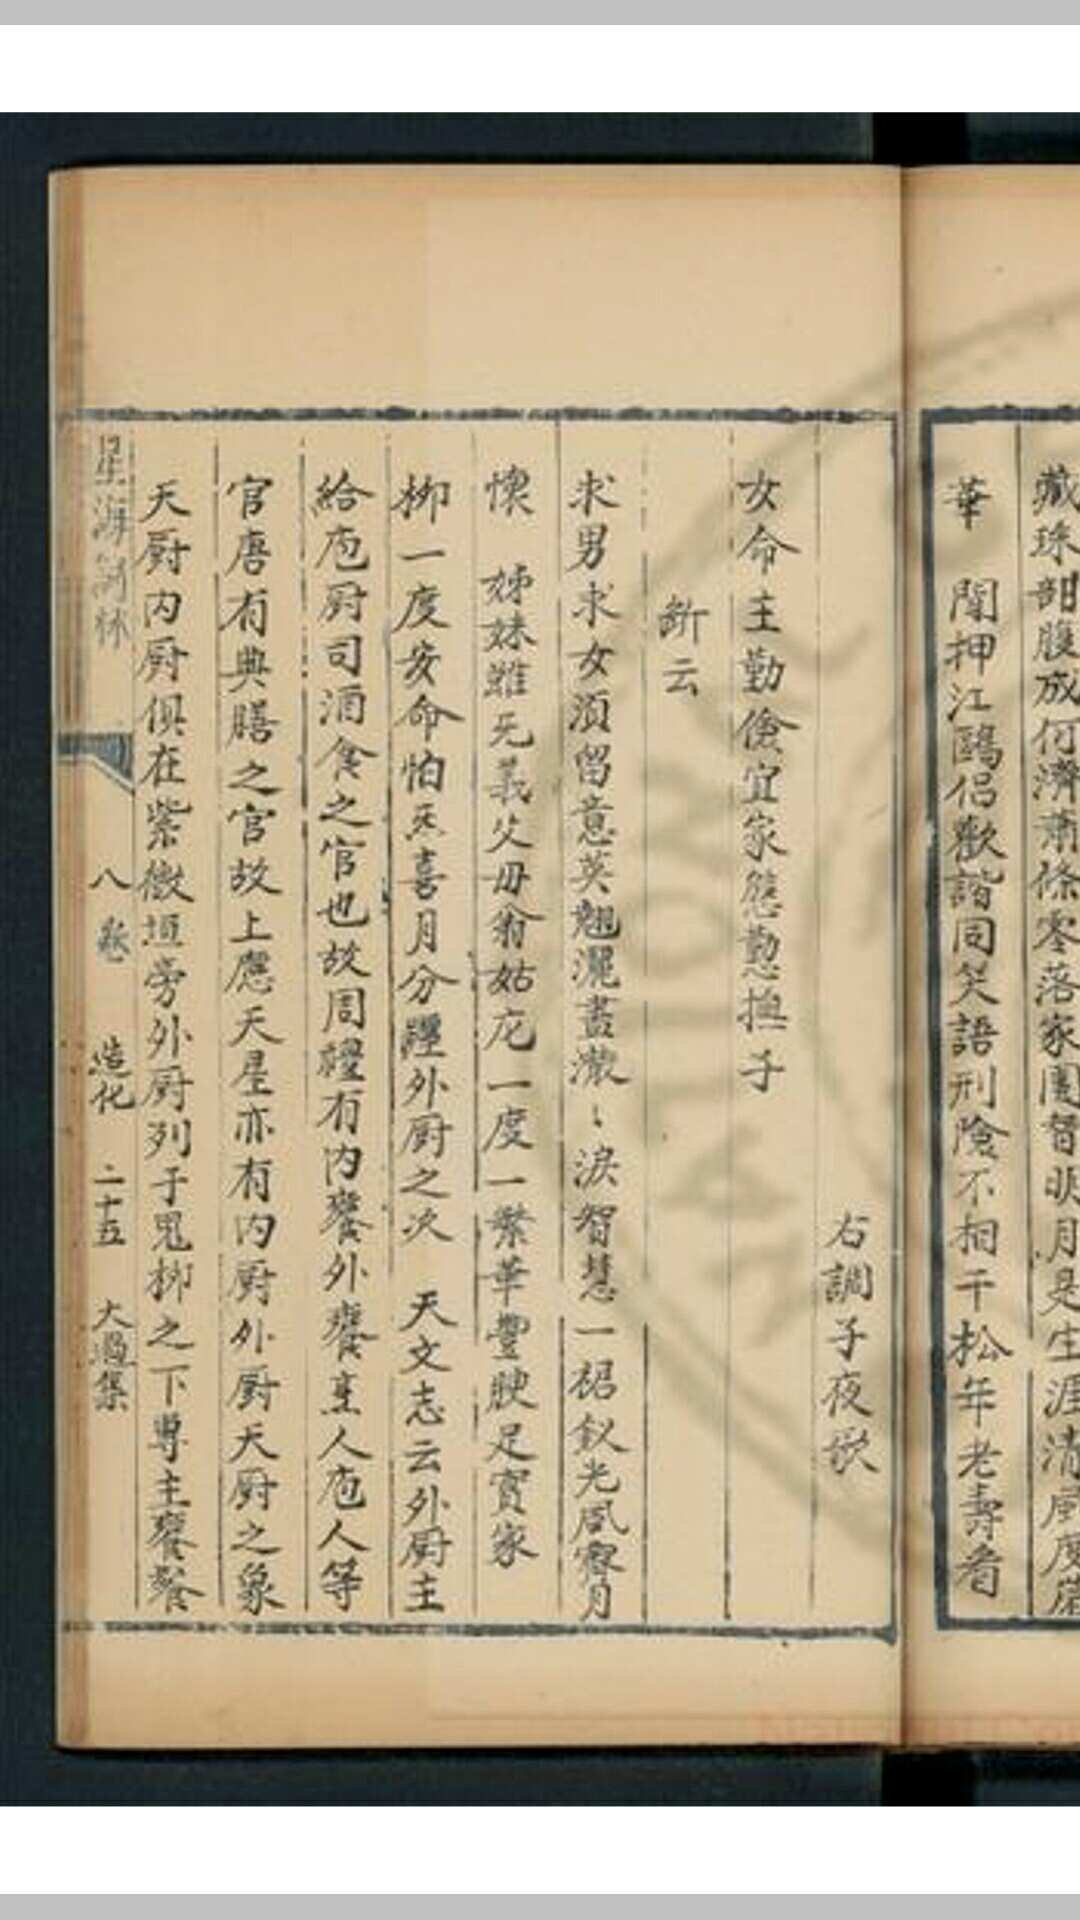 藏珠剖腹成何濟蕭條零落家園替明月是生涯清風度歲
華　閒押江鷗侶歡諧同笑語刑陰不相干松年老壽看
右調子夜歌
女命主勤儉宜家慇懃撫子
斷云
求男求女須留意英翹灑盡漵〻淚智慧一裙釵光風霽月
懷　姊妹雖无義父毋翁姑庀一度一繁華豐腴足實家
柳一度安命怕天喜月分纏外厨之次　天文志云外厨主
給庖厨司酒食之官也故周禮有內饔外饔烹人庖人等
官唐有典膳之官故上應天星亦有內厨外厨天厨之象
天厨內厨俱在紫微垣旁外厨列于鬼柳之下專主饔飱
星海詞林　八卷　造化　二十五　大過集